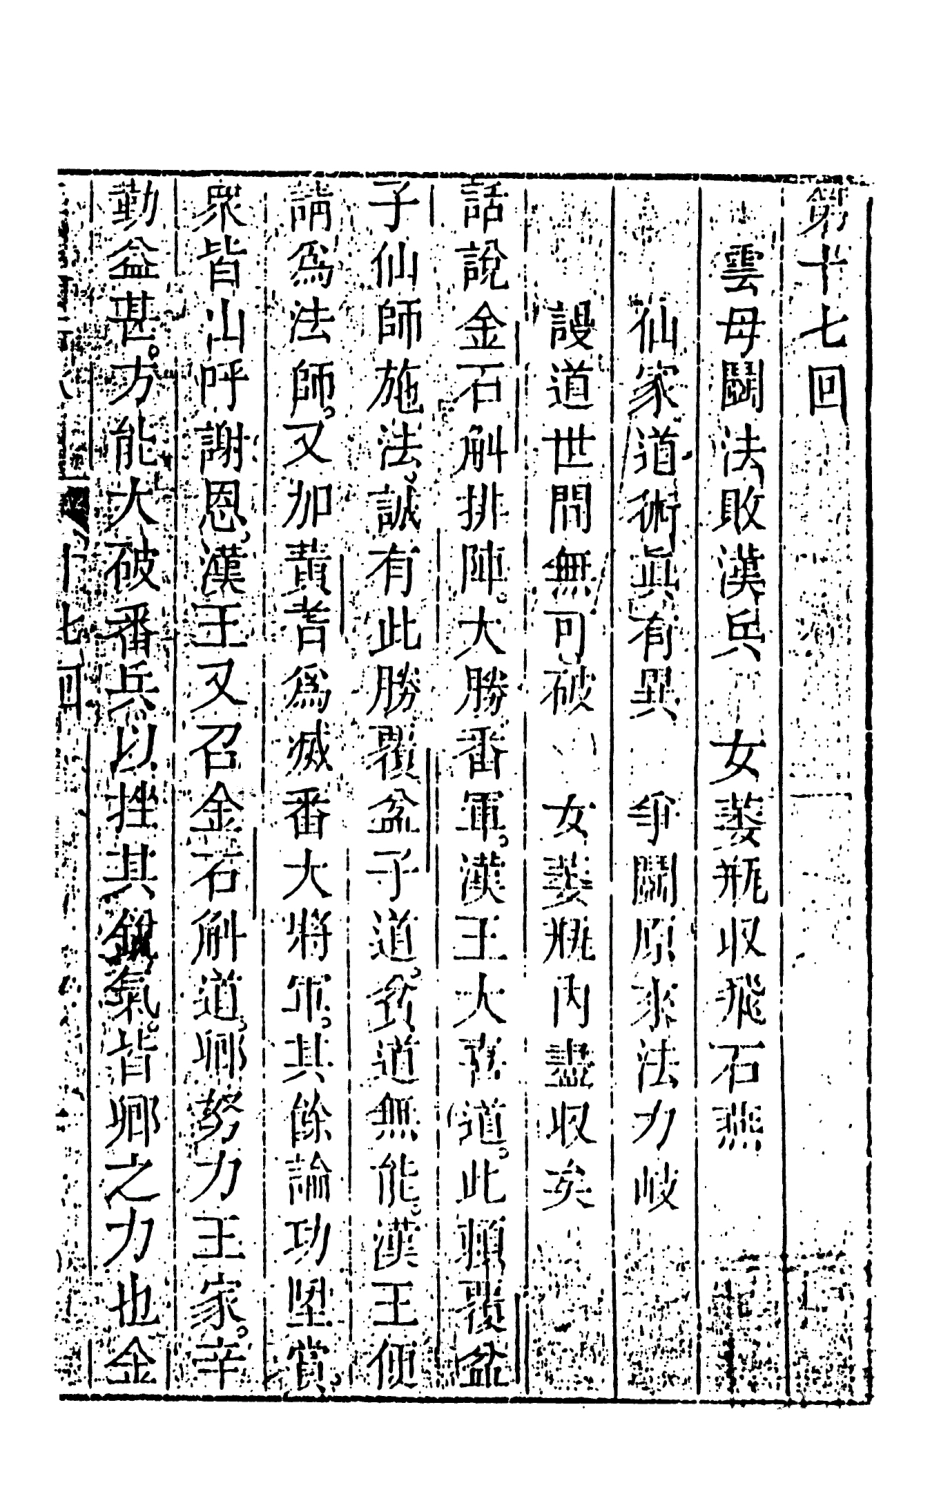 第十七回
雲母鬭法敗漢兵　女蒌瓶収飛石燕
仙家道術眞有異　爭鬭原來法力岐
謾道世間無可破　女蒌瓶内盡収矣
話說金石斛排陣大勝番軍漢王大喜道此頼覆盆
子仙師施法誠有此勝覆盆子道貧道無能漢王便
請爲法師又加黃耆爲滅番大將軍其餘論功陞賞
衆皆山呼謝恩漢王又召金石斛道卿努力王家辛
勤益甚方能大破番兵以挫其銳氣皆卿之力也金
十七回